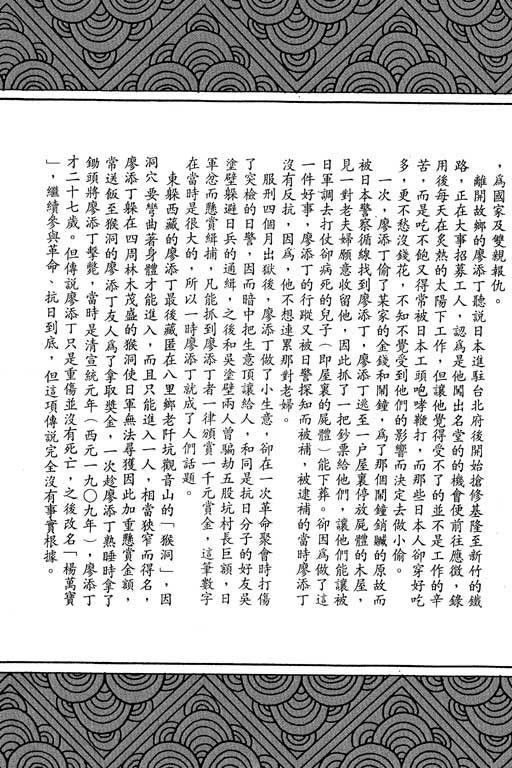 ，為國家及雙親報仇。
離開故鄉的廖添丁聽説日本進駐台北府後開始搶修基隆至新竹的鐵
路，正在大事招募工人，認為是他闖出名堂的的機會便前往應徵，錄
用後每天在炙熱的太陽下工作，但讓他覺得受不了的並不是工作的辛
苦，而是吃不飽又得常被日本工頭咆哮鞭打，而那些日本人卻穿好吃
多，更不愁沒錢花，不知不覺受到他們的影響而決定去做小偷。
一次，廖添丁偷了某家的金錢和鬧鐘，為了那個鬧鐘銷贓的原故而
被日本警察循線找到廖添丁，廖添丁逃至一户屋裏停放屍體的木屋，
見一對老夫婦願意收留他，因此抓了一把鈔票給他們，讓他們能讓被
日軍調去打仗卻病死的兒子（即屋裏的屍體）能下葬。卻因為做了這
一件好事，廖添丁的行蹤又被日警探知而被補，被逮補的當時廖添丁
沒有反抗，因為，他不想連累那對老婦。
服刑四個月出獄後，廖添丁做了小生意，卻在一次革命聚會時打傷
了突檢的日警，因而暗中把生意頂讓給人，和同是抗日分子的好友吳
塗壁躲避日兵的通緝，之後和吳塗壁兩人曾騙劫五股坑村長巨額，日
軍忿而懸賞緝捕，凡能抓到廖添丁者一律頒賞一千元賞金，這筆數字
在當時是很大的，所以一時廖添丁就成了人們話題。
東躲西藏的廖添丁最後藏匿在八里鄉老阡坑觀音山的「猴洞」，因
洞穴要彎曲著身體才能進入，而且只能進入一人，相當狹窄而得名，
廖添丁躲在四周林木茂盛的猴洞使日軍無法尋獲因此加重懸賞金額，
常送飯至猴洞的廖添丁友人為了拿取獎金，一次趁廖添丁熟睡時拿了
鋤頭將廖添丁擊斃，當時是清宣統元年（西元一九〇九年），廖添丁
才二十七歲。但傳説廖添丁只是重傷並沒有死亡，之後改名「楊萬寶
」，繼續參與革命、抗日到底，但這項傳説完全沒有事實根據。